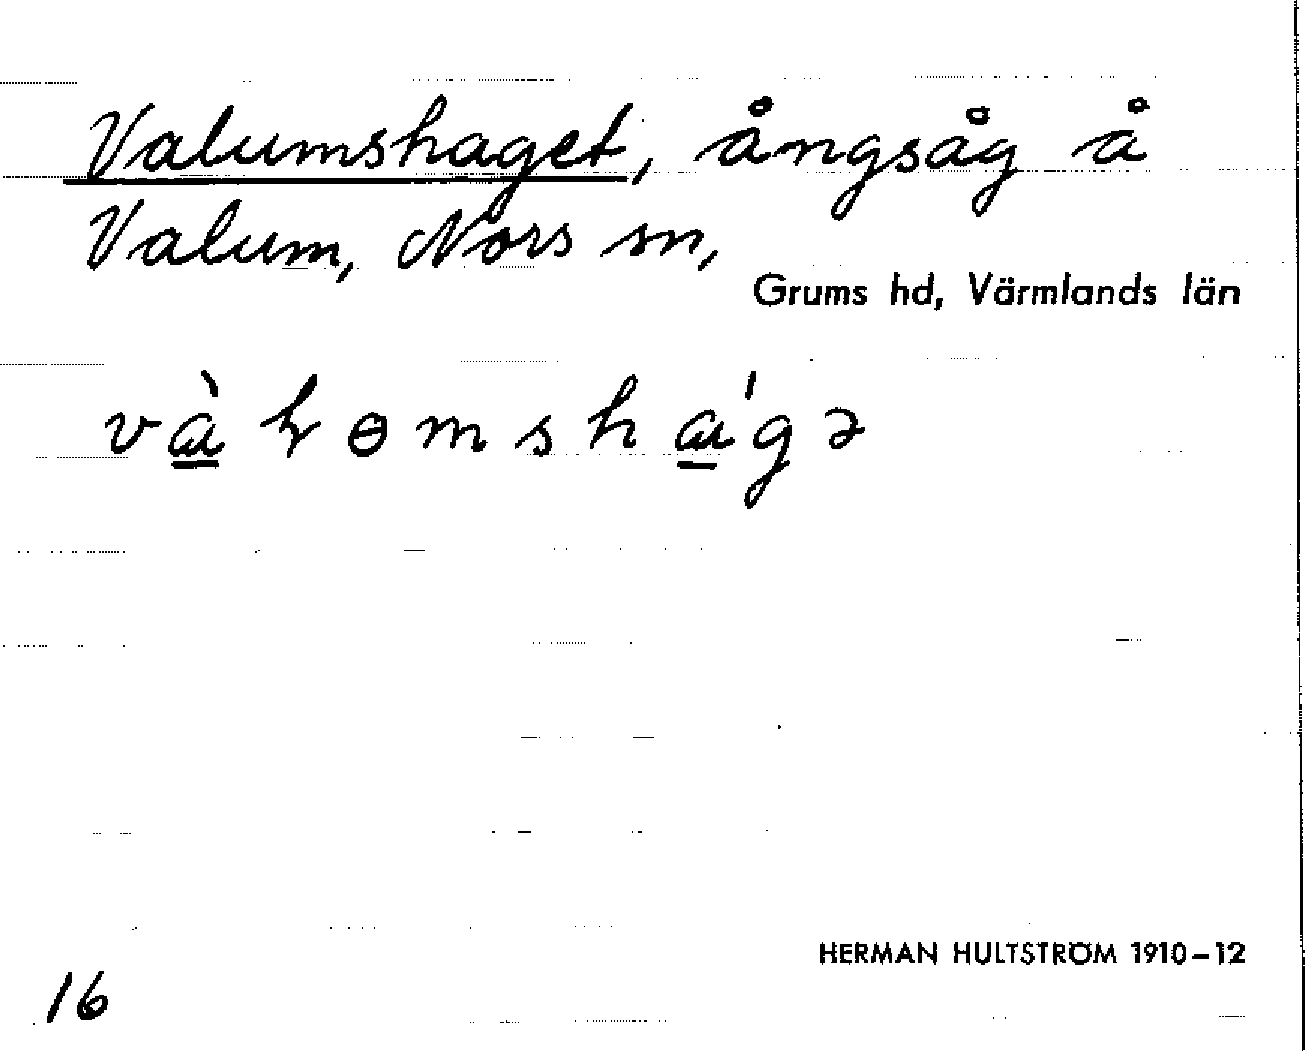 Valumshaget, ångsåg å
Valum, Nors sn,
Grums hd, Värmlands län
HERMAN HULTSTRÖM 1910-12
16